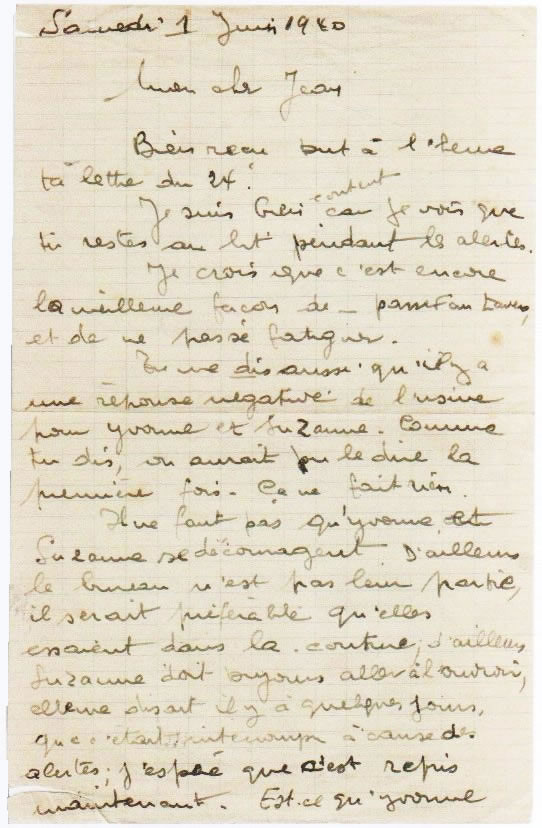 Samedi 1 Juin 1940
Mon cher Jean
Bien reçu tout à l'heure
ta lettre du 24.
Je suis bien content car je vois que
tu restes au lit pendant les alertes.
Je crois que c'est encore
la meilleure façon de passer au travers,
et de ne pas se fatiguer.
Tu me dis aussi qu'il y a
une réponse négative de l'usine
pour Yvonne et Suzanne. Comme
tu dis, on aurait pu le dire la
première fois. Ça ne fait rien.
Il ne faut pas qu'Yvonne et
Suzanne se découragent. D'ailleurs
le bureau n'est pas leur partie,
il serait préférable qu'elles
essaient dans la couture, d'ailleurs
Suzanne doit toujours aller à l'ouvroir,
elle me disait il y a quelques jours,
que c'était interrompu à cause des
alertes; j'espère que c'est repris
maintenant. Est-ce qu'Yvonne